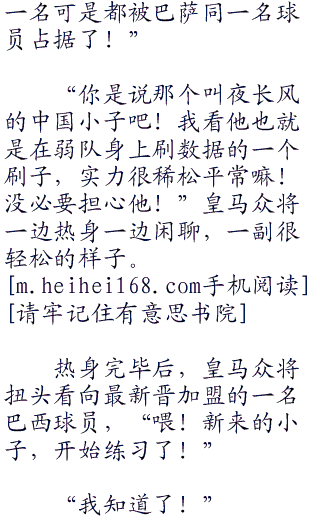 一名可是都被巴萨同一名球
员占据了！”
“你是说那个叫夜长风
的中国小子吧！我看他也就
是在弱队身上刷数据的一个
刷子，实力很稀松平常嘛！
没必要担心他！”皇马众将
一边热身一边闲聊，一副很
轻松的样子。
[m.heihei168.com手机阅读]
[请牢记住有意思书院]
热身完毕后，皇马众将
扭头看向最新晋加盟的一名
巴西球员，“喂！新来的小
子，开始练习了！”
“我知道了！”